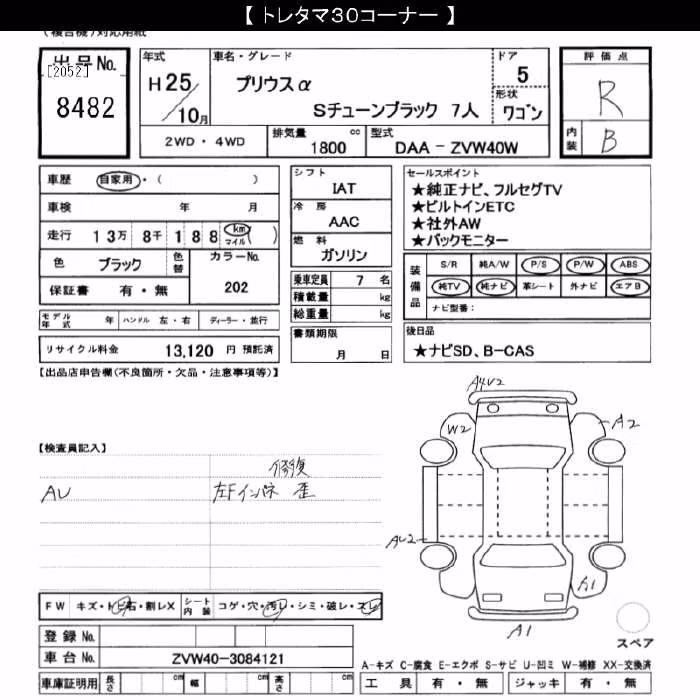 【 トレタマ30コーナー 】
(複合機)対応用紙
出品No.
[2052]
8482
年式
H 25/10月
車名・グレード
プリウスα
Sチューンブラック 7人
ドア
5
形状
ワゴン
評価点
R
内装
B
2WD・4WD
排気量 1800 cc
型式 DAA－ZVW40W
車歴 自家用・( )
車検 年 月
走行 13万 8千 188 km マイル ( )
色 ブラック 色替 カラーNo. 202
保証書 有・無
モデル年式 年 ハンドル 左・右 ディーラー・並行
リサイクル料金 13,120 円 預託済
シフト
IAT
冷房
AAC
燃料
ガソリン
乗車定員 7 名
積載量 kg
総重量 kg
書類期限
月 日
セールスポイント
★純正ナビ、フルセグTV
★ビルトインETC
★社外AW
★バックモニター
装備品
S/R 純A/W P/S P/W ABS
純TV 純ナビ 革シート 外ナビ エアB
ナビ型番:
後日品
★ナビSD、B-CAS
【出品店申告欄(不良箇所・欠品・注意事項等)】
【検査員記入】
AU
修復
左Fインパネ 歪
A4V2
W2
A2
AU2
A1
A1
スペア
FW キズ・トビ石・割レX シート内装 コゲ・穴・汚レ・シミ・破レ・スレ
登録No.
車台No. ZVW40-3084121
車庫証明用 長さ cm 幅 cm 高さ cm
A-キズ C-腐食 E-エクボ S-サビ U-凹ミ W-補修 XX-交換済
工具 有・無 ジャッキ 有・無